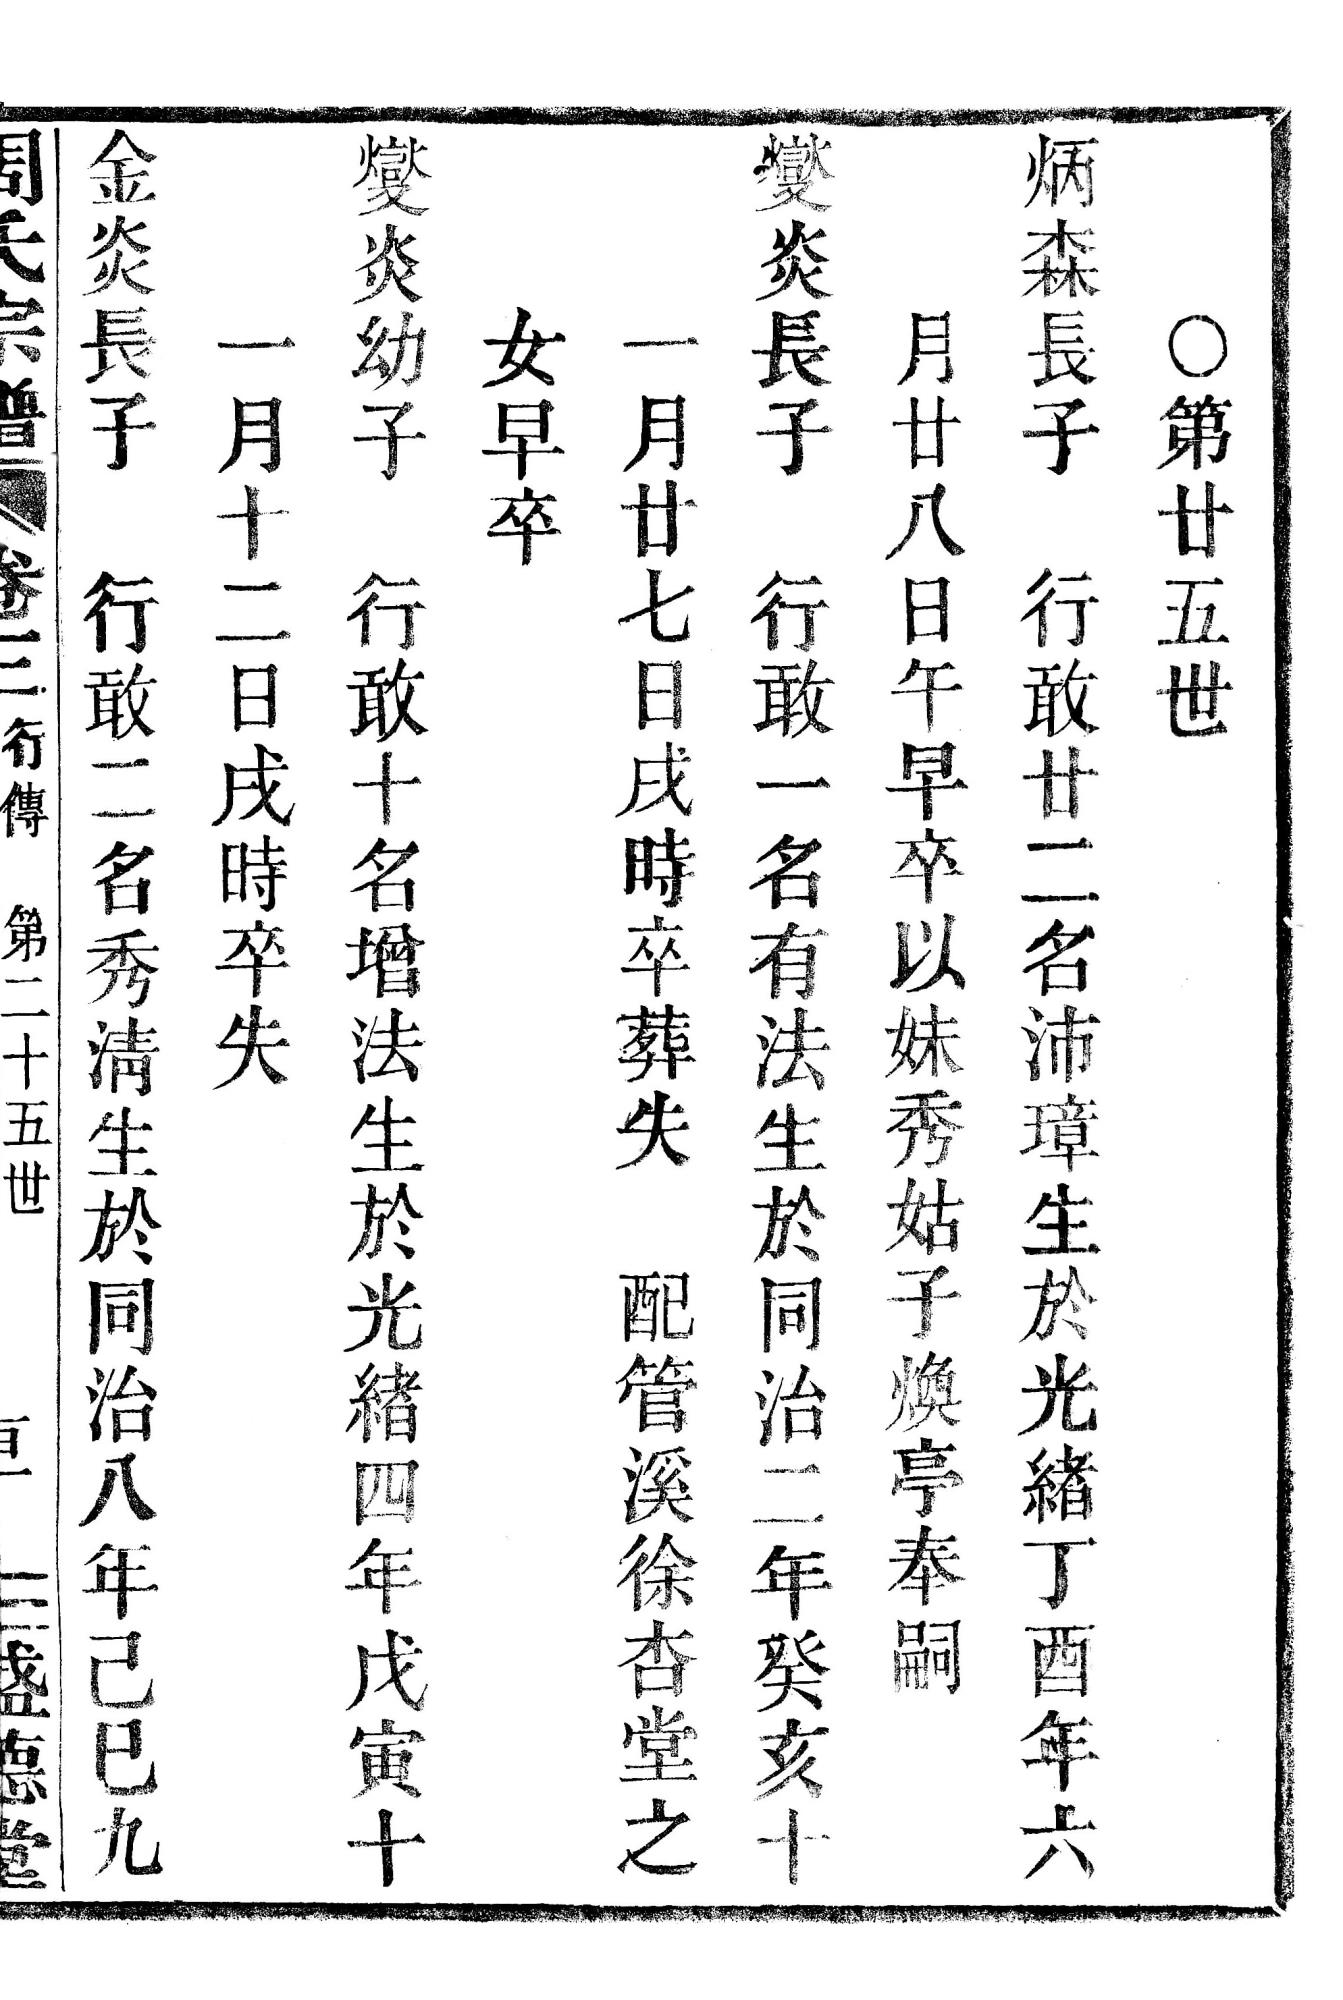 ○第廿五世
炳森長子　行敢廿二名沛璋生於光緒丁酉年六
月廿八日午早卒以妹秀姑子煥亭奉嗣
燮炎長子　行敢一名有法生於同治二年癸亥十
一月廿七日戌時卒葬失　配管溪徐杏堂之
女早卒
燮炎幼子　行敢十名增法生於光緒四年戊寅十
一月十二日戌時卒失
金炎長子　行敢二名秀淸生於同治八年己巳九
周氏宗譜　卷三行傳　第二十五世　盛德堂